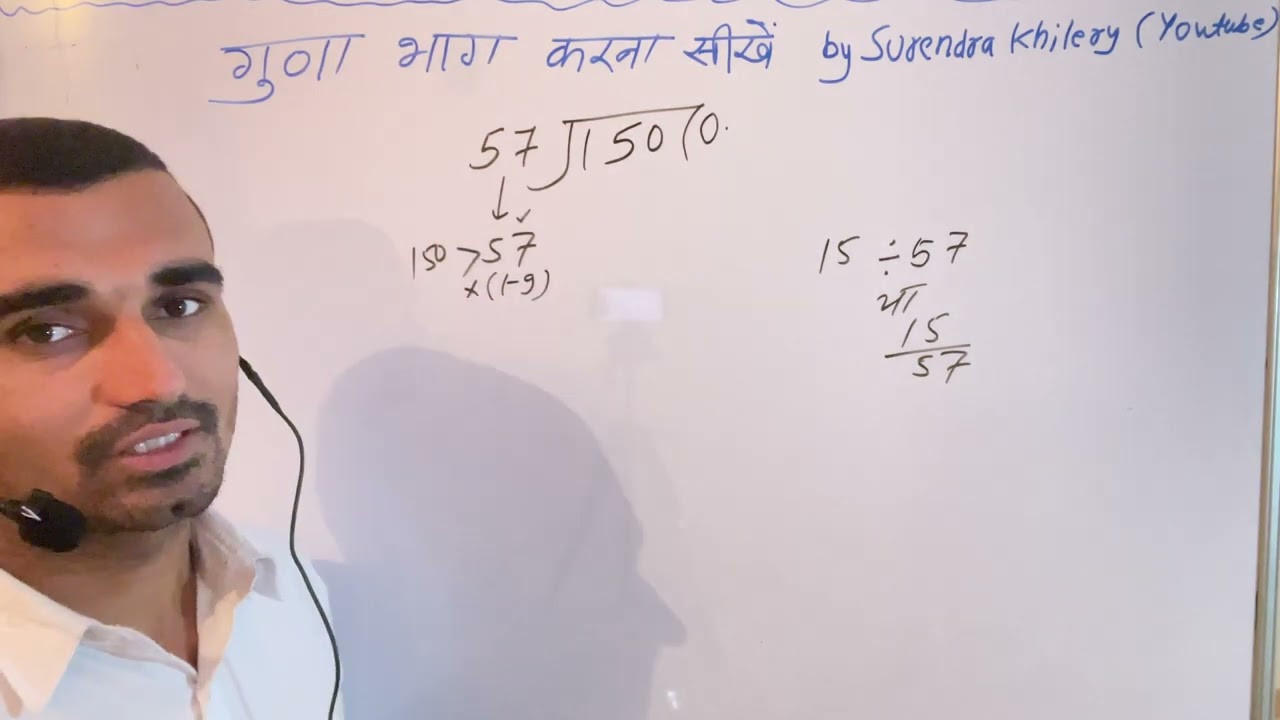 गुणा भाग करना सीखें by Surendra Khilery (Youtube)
57 ) 150 ( 0.
↓
150 > 57 ✓
× (1-9)
15 ÷ 57
या
15
57